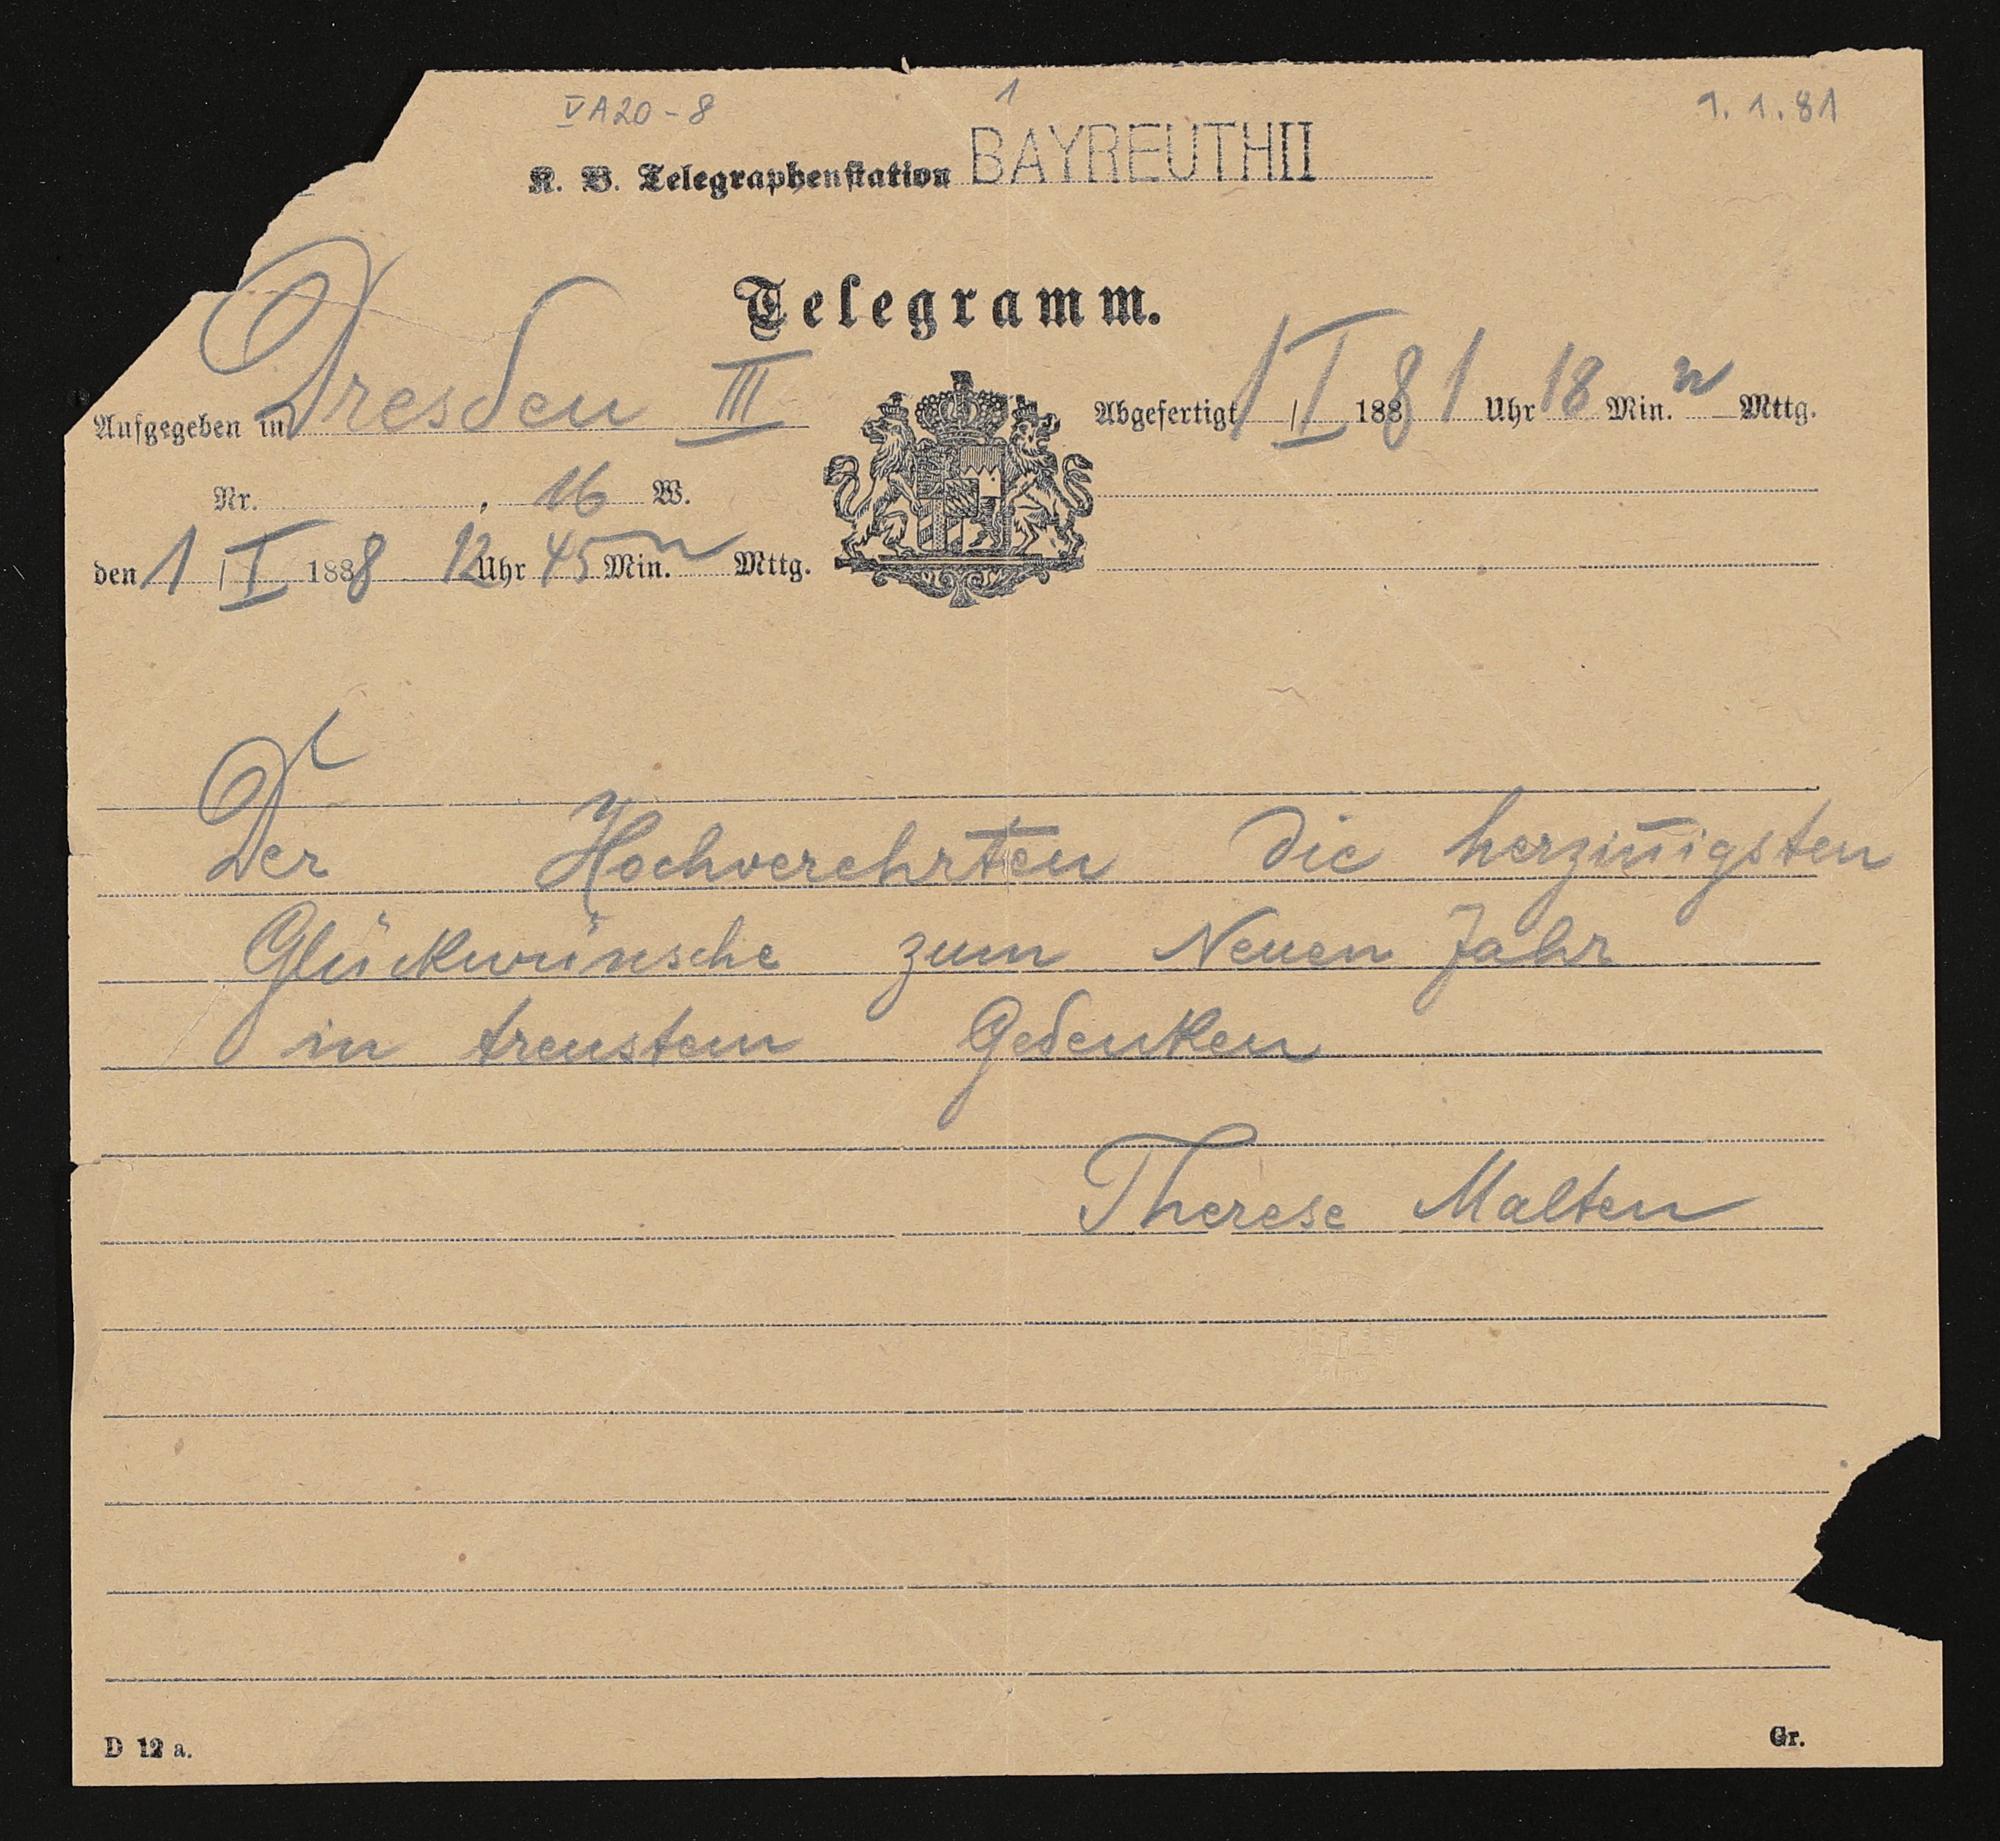 VA20-8
1
1.1.81
K. B. Telegraphenstation BAYREUTH II
Telegramm.
Aufgegeben in Dresden III
Abgefertigt 1 / I 1888 1 Uhr 18 Min. n Mttg.
Nr. , 16 W.
den 1 / I 1888 12 Uhr 45 Min. n Mttg.
Der Hochverehrten die herzin̄igsten
Glückwünsche zum Neuen Jahr
in treustem Gedenken
Therese Malten
D 12 a.
Gr.